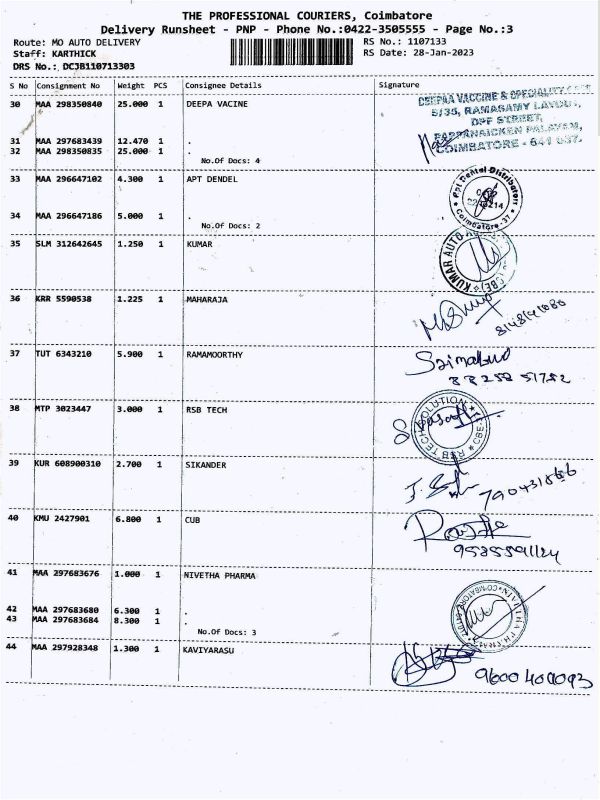 THE PROFESSIONAL COURIERS, Coimbatore
Delivery Runsheet - PNP - Phone No.:0422-3505555 - Page No.:3
Route: MO AUTO DELIVERY RS No.: 1107133
Staff: KARTHICK RS Date: 28-Jan-2023
DRS No.: DCJB110713303
S No Consignment No Weight PCS Consignee Details Signature
30 MAA 298350840 25.000 1 DEEPA VACINE
DEEPAA VACCINE & SPECIALITY CARE
5/35, RAMASAMY LAYOUT,
DPF STREET,
PAPPANAICKEN PALAYAM,
COIMBATORE - 641 037.
31 MAA 297683439 12.470 1 .
32 MAA 298350835 25.000 1 .
No.Of Docs: 4
33 MAA 296647102 4.300 1 APT DENDEL
Dental Distributors
Coimbatore-37
34 MAA 296647186 5.000 1 .
No.Of Docs: 2
35 SLM 312642645 1.250 1 KUMAR
KUMAR AUTO
36 KRR 5590538 1.225 1 MAHARAJA
37 TUT 6343210 5.900 1 RAMAMOORTHY
38 MTP 3023447 3.000 1 RSB TECH
RSB TECH SOLUTION
CBE
39 KUR 608900310 2.700 1 SIKANDER
40 KMU 2427901 6.800 1 CUB
41 MAA 297683676 1.000 1 NIVETHA PHARMA
42 MAA 297683680 6.300 1 .
43 MAA 297683684 8.300 1 .
No.Of Docs: 3
44 MAA 297928348 1.300 1 KAVIYARASU